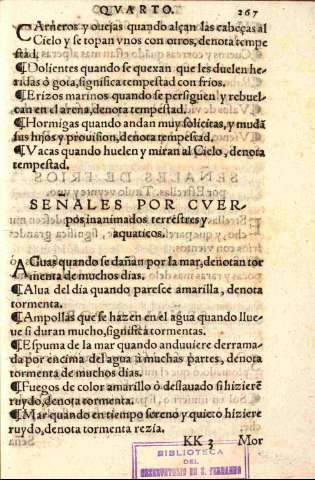 QVARTO. 267
CArneros y ouejas quando alçan las cabeças al
Cielo y se topan vnos con otros, denota tempe
stad.
¶Dolientes quando se quexan que les duelen he
ridas ò gota, significa tempestad con frios.
¶Erizos marinos quando se persiguen y rebuel
can en el arena, denota tempestad.
¶Hormigas quando andan muy solicitas, y mudã
sus hijos y prouision, denota tempestad.
¶Vacas quando huelen y miran al Cielo, denota
tempestad.
SEÑALES POR CVER-
pos inanimados terrestres y
aquaticos.
AGuas quando se dañan por la mar, denotan tor
menta de muchos dias.
¶Alua del dia quando paresce amarilla, denota
tormenta.
¶Ampollas que se hazen en el agua quando llue-
ue si duran mucho, significa tormentas.
¶Espuma de la mar quando anduuiere derrama-
da por encima del agua à muchas partes, denota
tormenta de muchos dias.
¶Fuegos de color amarillo ò deslauado si hizierẽ
ruydo, denota tormenta.
¶Mar quando en tiempo sereno y quieto hiziere
ruydo, denota tormenta rezia.
KK 3 Mor
BIBLIOTECA
DEL
OBSERVATORIO DE S. FERNANDO